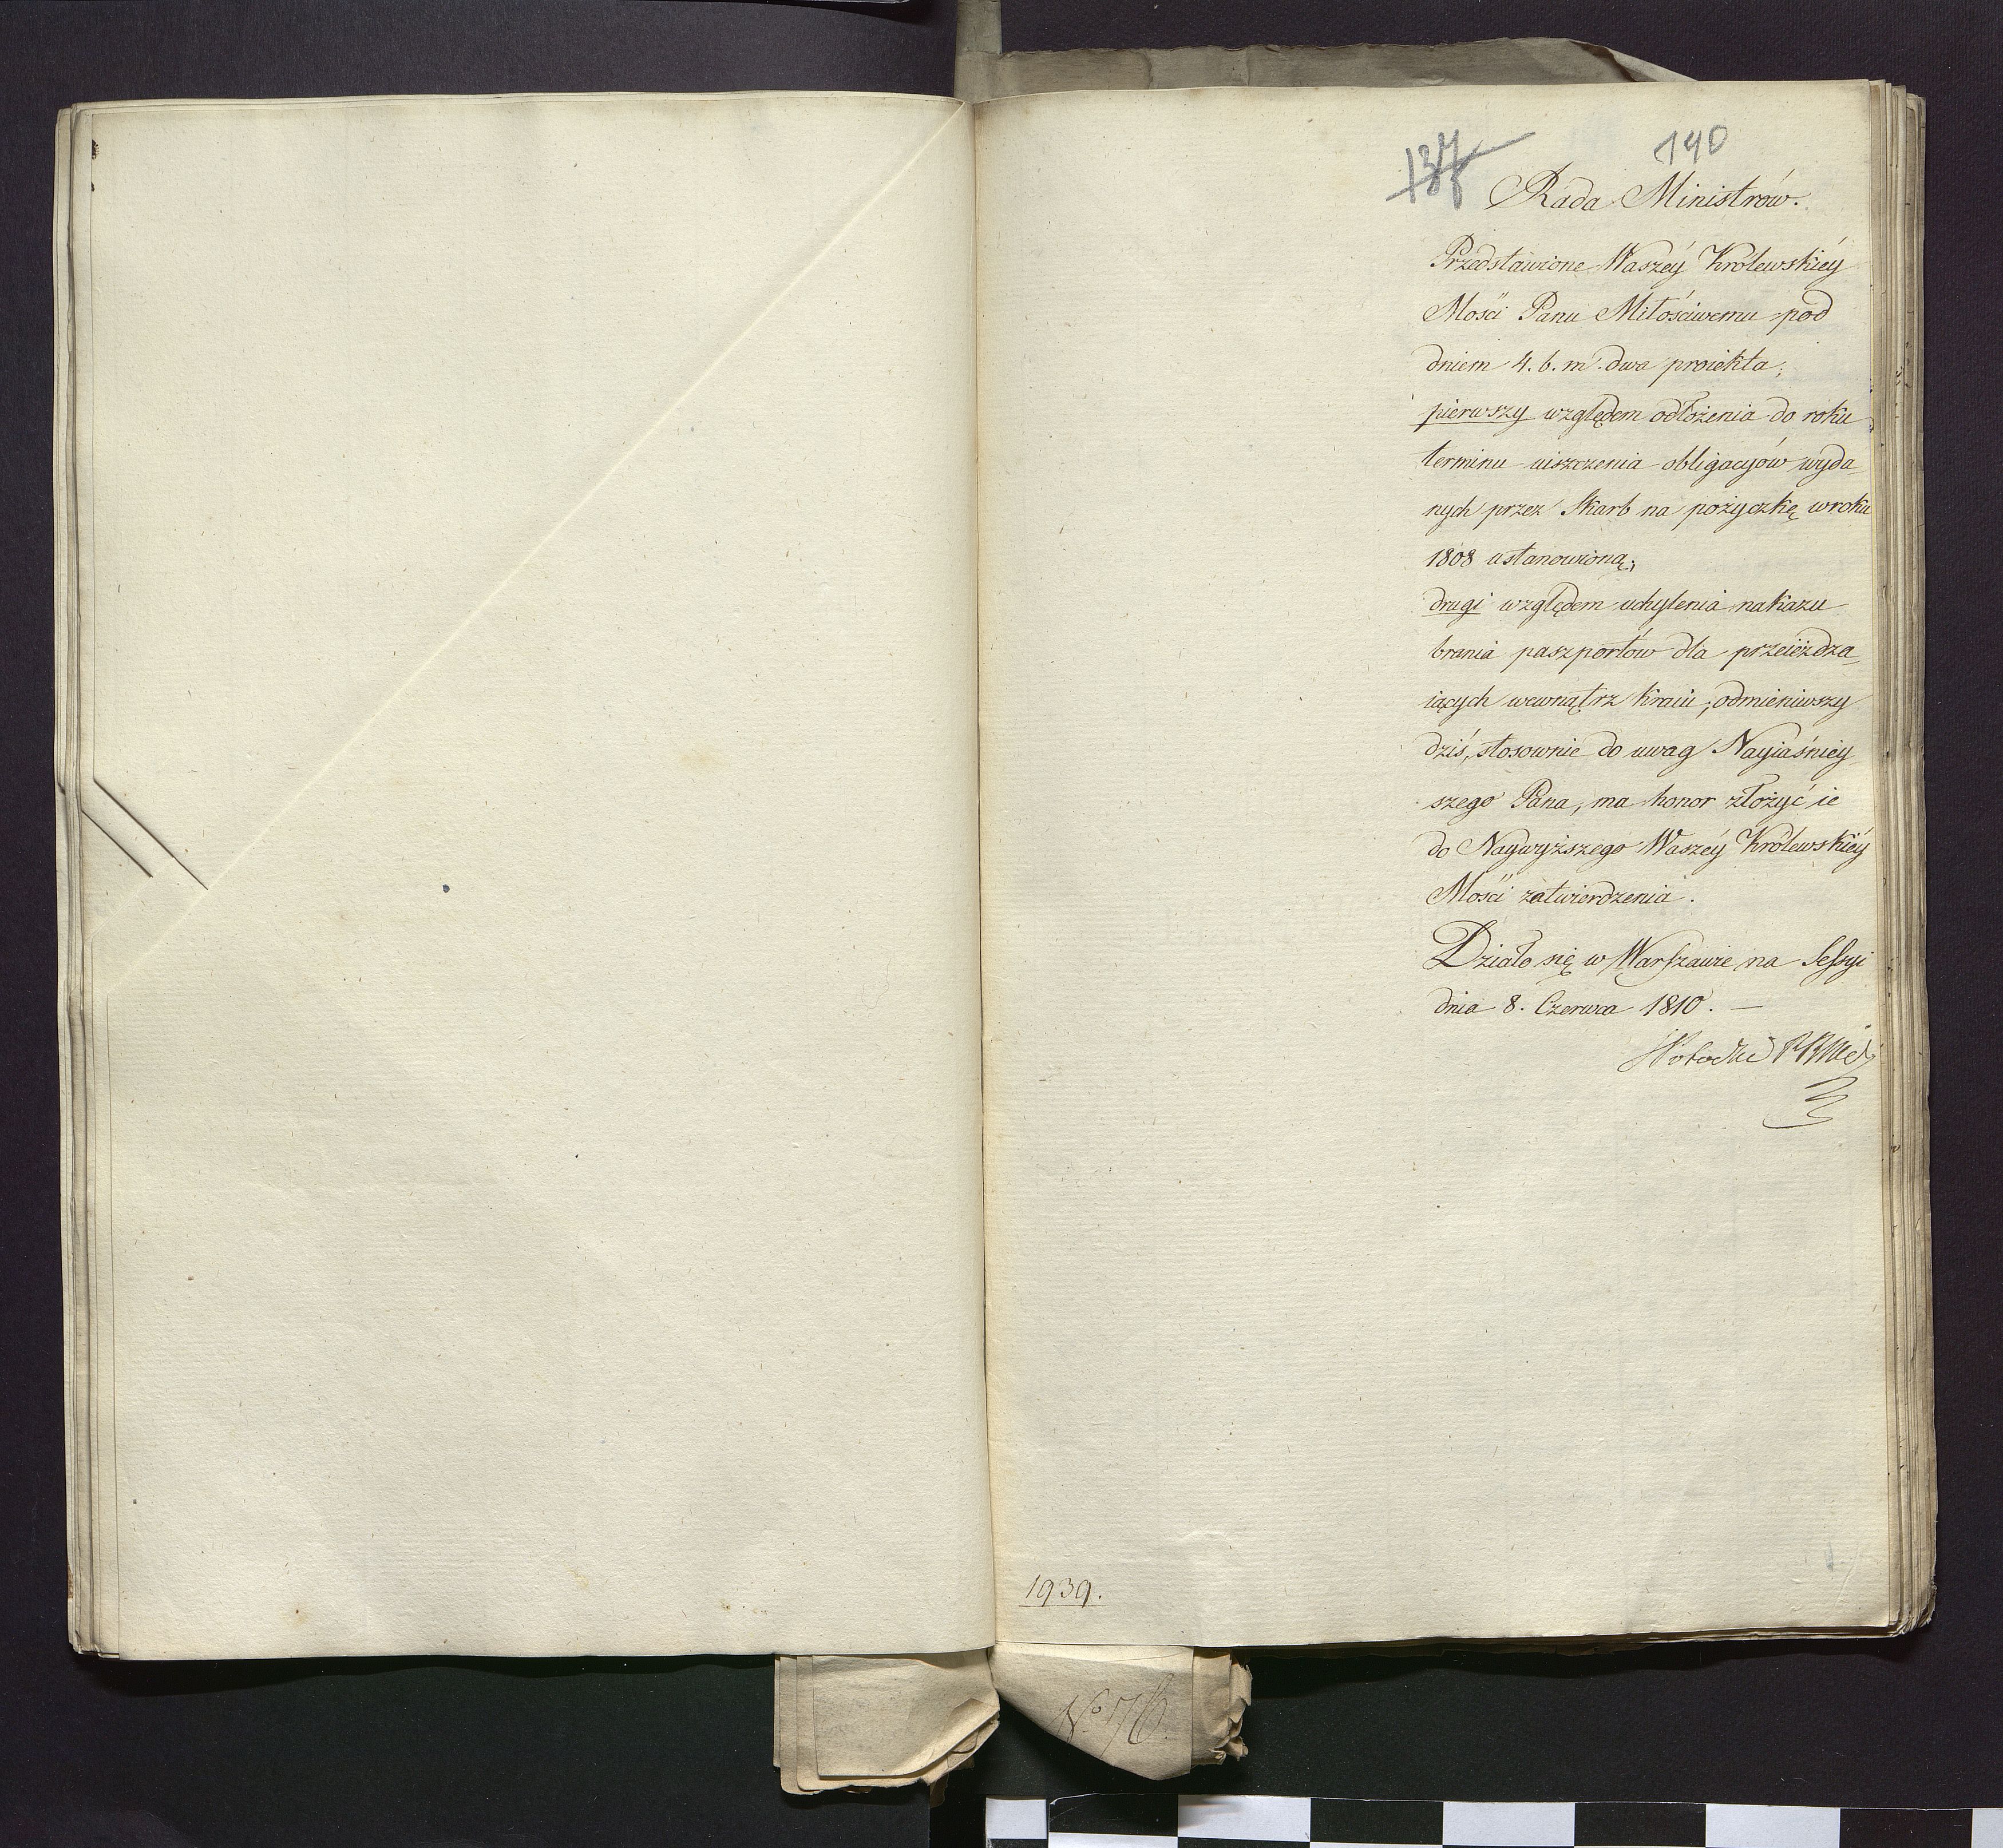 140
Rada Ministrów.
Przedstawione Waszéy Królewskiéy
Mości Panu Miłościwemu pod
dniem 4. b. m. dwa proiekta;
pierwszy względem odłożenia do roku
terminu uiszczenia obligacyów wyda
nych przez Skarb na pożyczkę w roku
1808 ustanowioną;
drugi względem uchylenia nakazu
brania paszportów dla przeieżdza
iących wewnątrz kraiu, odmieniwszy
dziś, stosownie do uwag Nayiaśniey
szego Pana, ma honor złożyć ie
do Naywyższego Waszéy Królewskiéy
Mości zatwierdzenia.
Działo się w Warszawie na Sessyi
dnia 8. Czerwca 1810. —
Potocki
1939.
No 76.